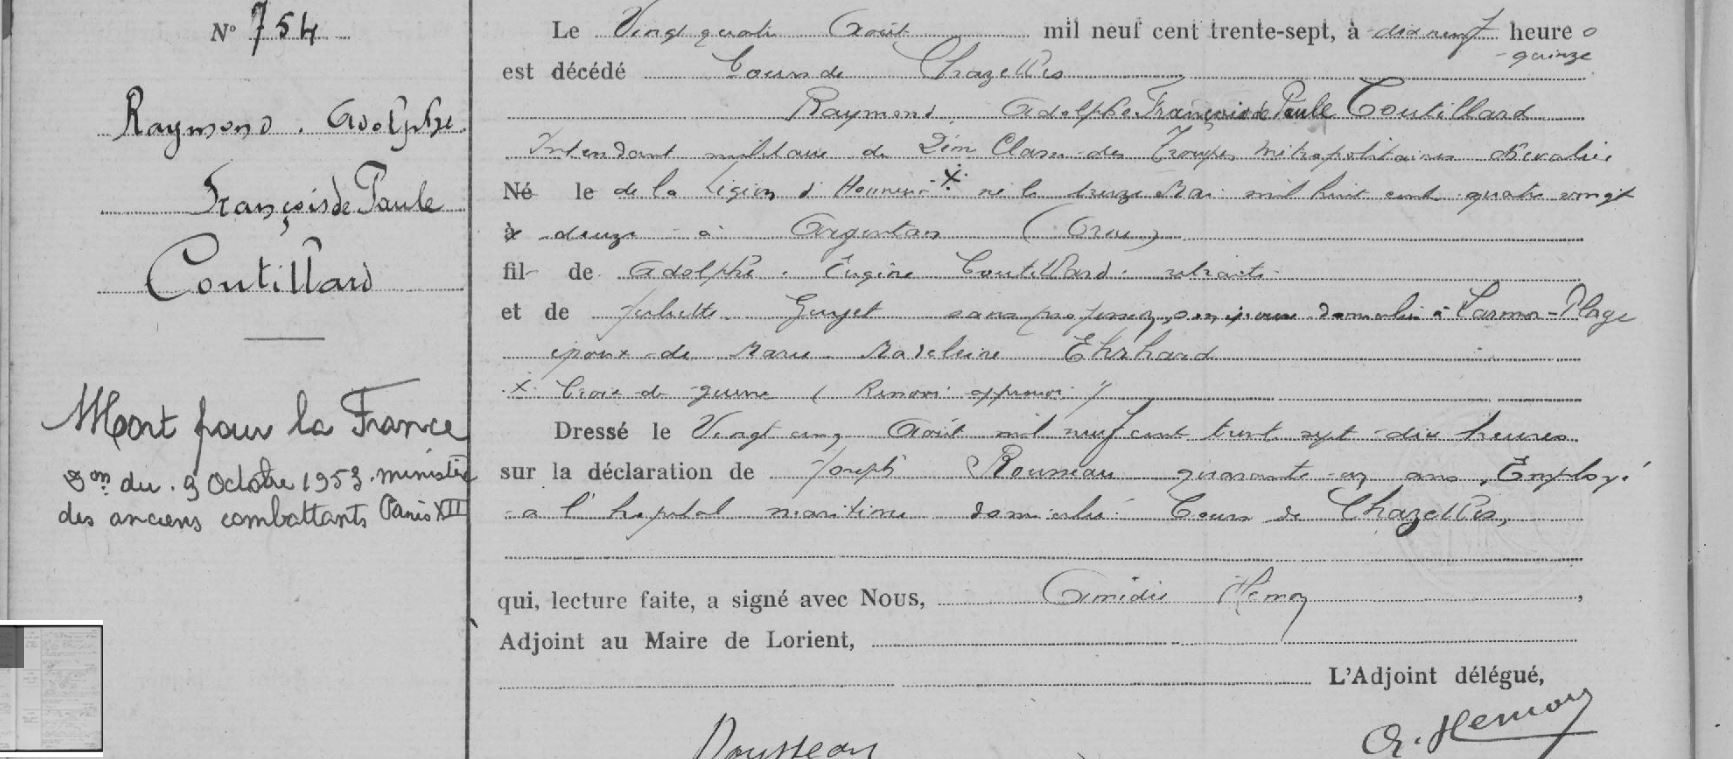 N° 754
Raymond. Adolphe
François de Paule
Coutillard
Mort pour la France
don du 9 Octobre 1953. ministère
des anciens combattants Paris XII
Le Vingt quatre Août mil neuf cent trente-sept, à dix neuf heure s
quinze
est décédé Cours de Chazelles
Raymond, Adolphe François de Paule Coutillard
Intendant militaire de 2èm Classe des Troupes métropolitaines chevalier
Né le de la Légion d'Honneur X né le treize Mai mil huit cent quatre vingt
à douze à Argentan (Orne)
fil de Adolphe. Eugène Coutillard. retraité
et de Juliette Guyet sans profession, son épouse domiciliés à Larmor-Plage
époux de Marie Madeleine Ehrhard
X Croix de guerre (Renvoi approuvé)
Dressé le Vingt cinq Août mil neuf cent trente sept dix heures
sur la déclaration de Joseph Rousseau quarante ans, Employé
à l'hopital maritime domicilié Cours de Chazelles,
qui, lecture faite, a signé avec Nous, Amédée Hemon,
Adjoint au Maire de Lorient,
L'Adjoint délégué,
Rousseau
A. Hemon